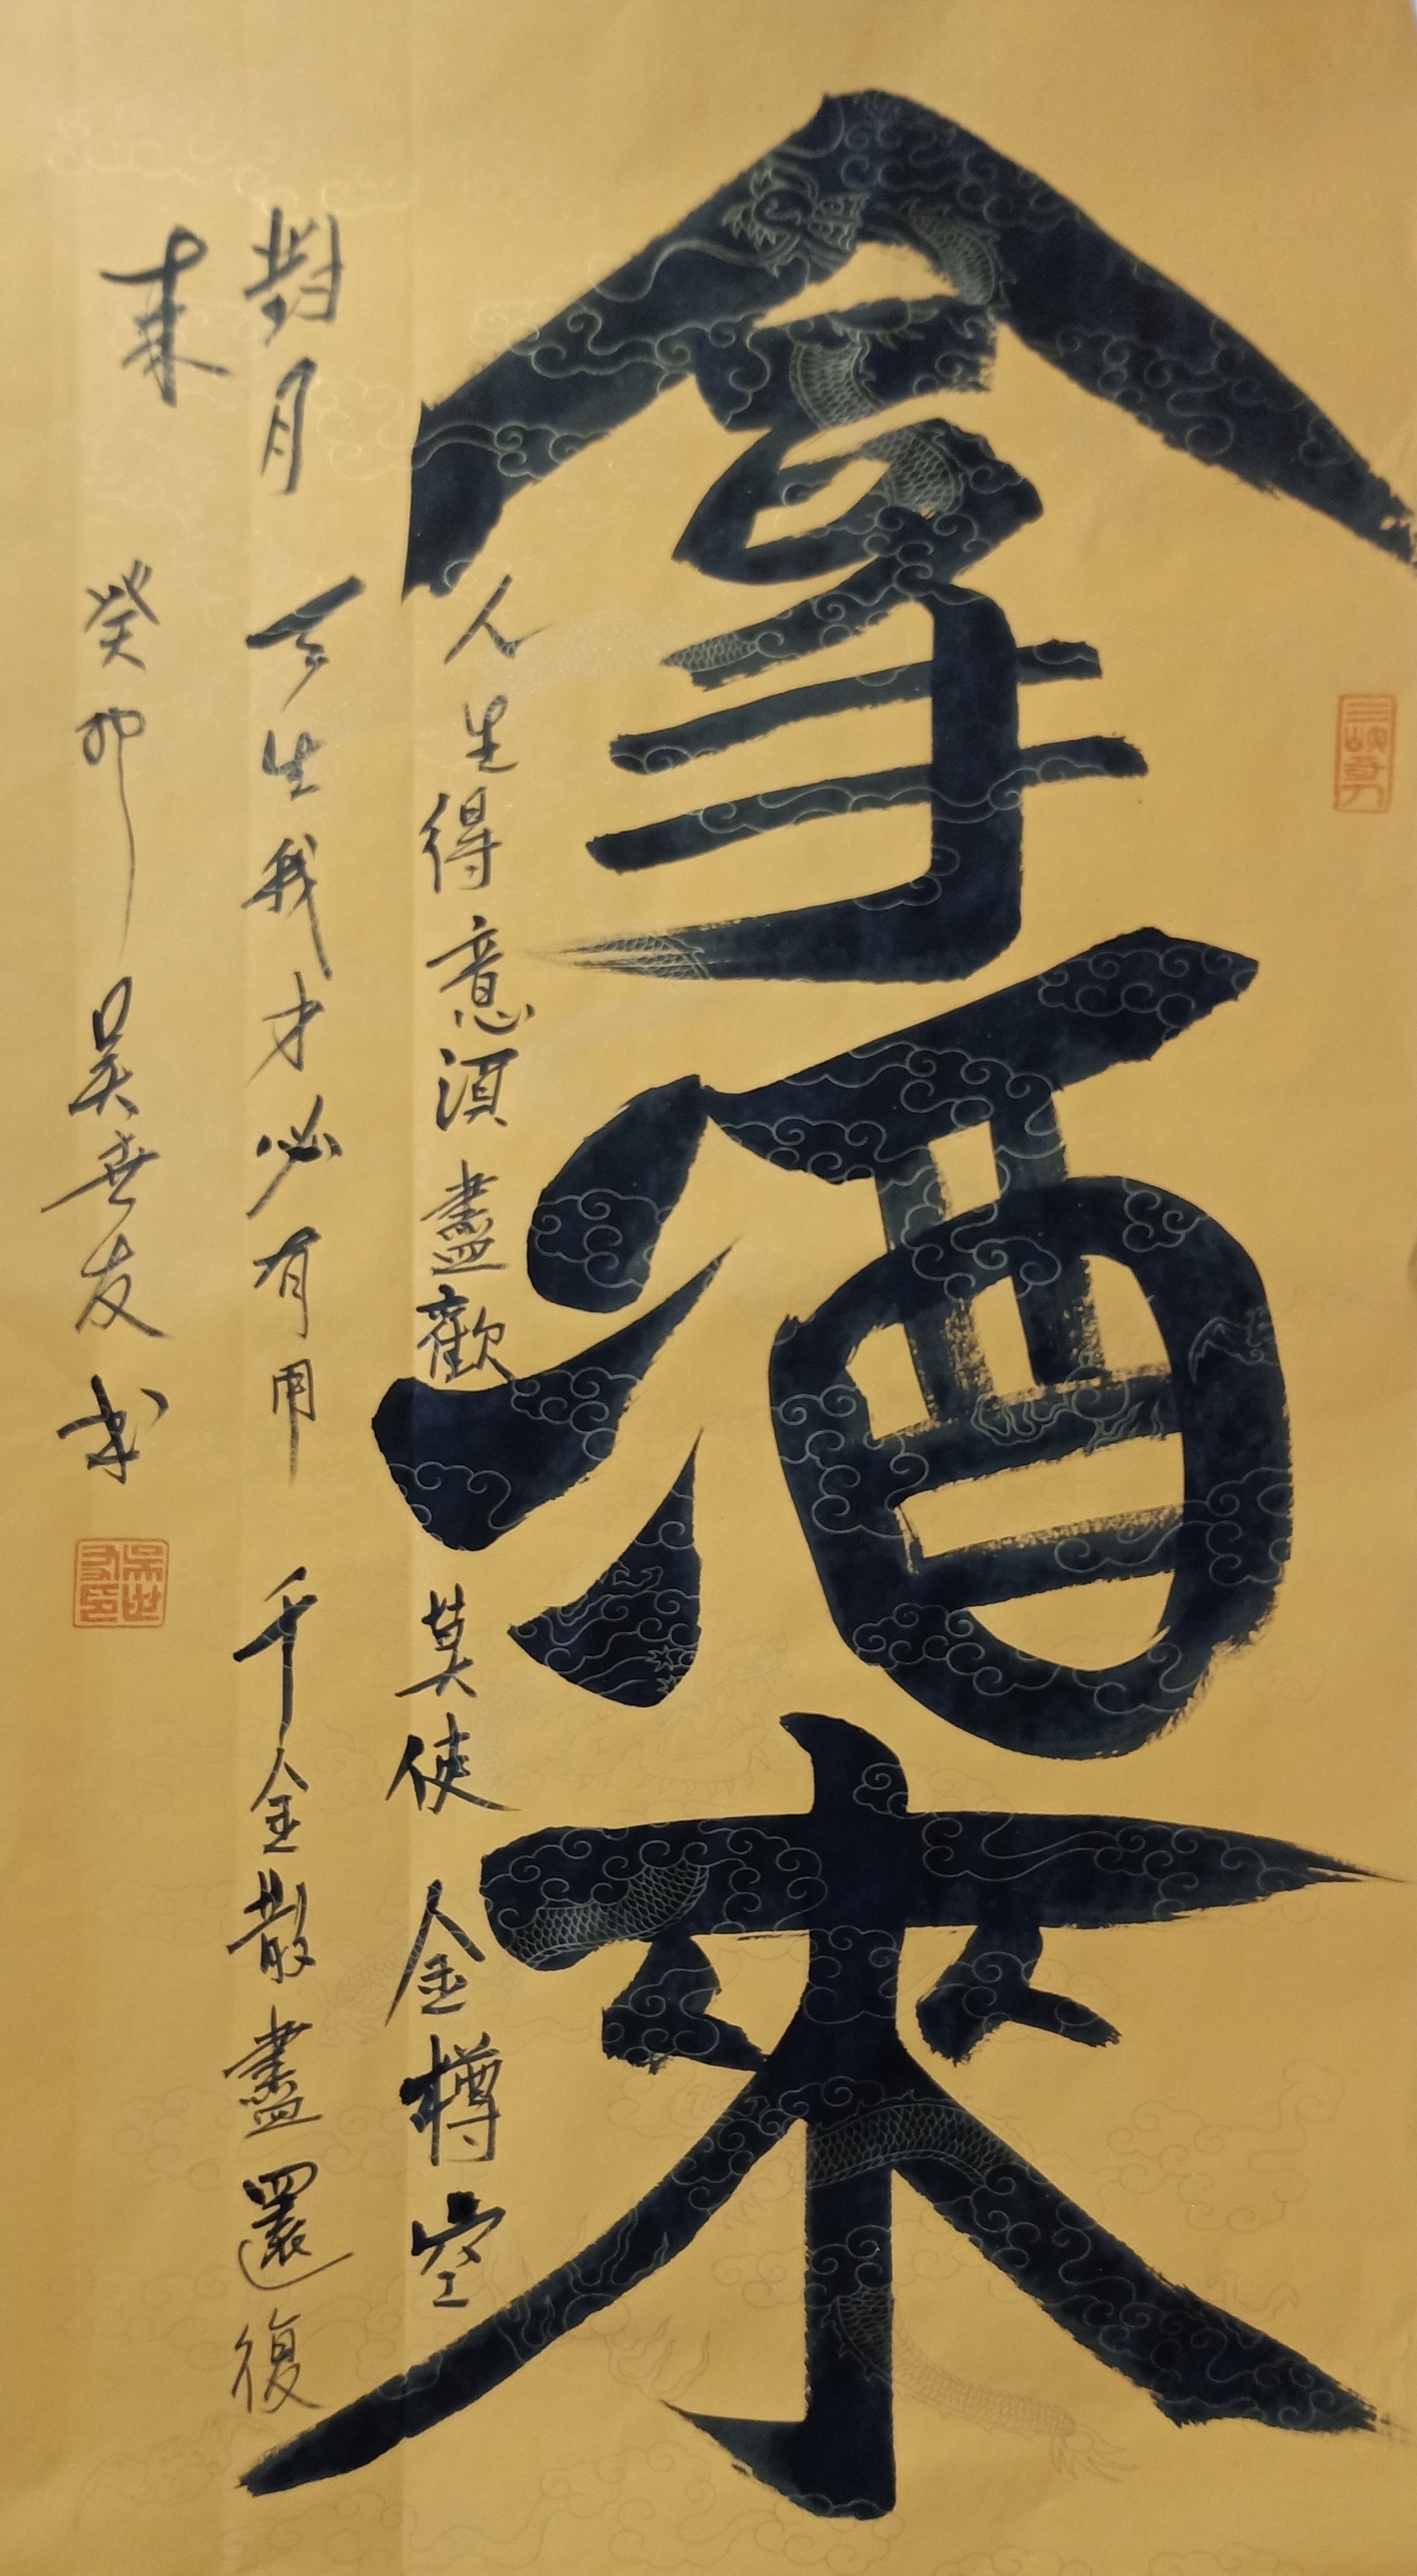 拿酒來
人生得意須盡歡 莫使金樽空
對月 天生我才必有用 千金散盡還復
來 癸卯 吳世友書
吳世友印